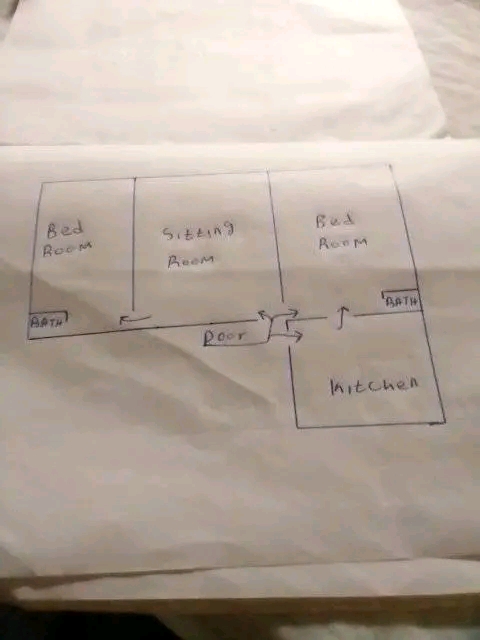 Bed
Room
Sitting
Room
Bed
Room
BATH
BATH
Door
Kitchen